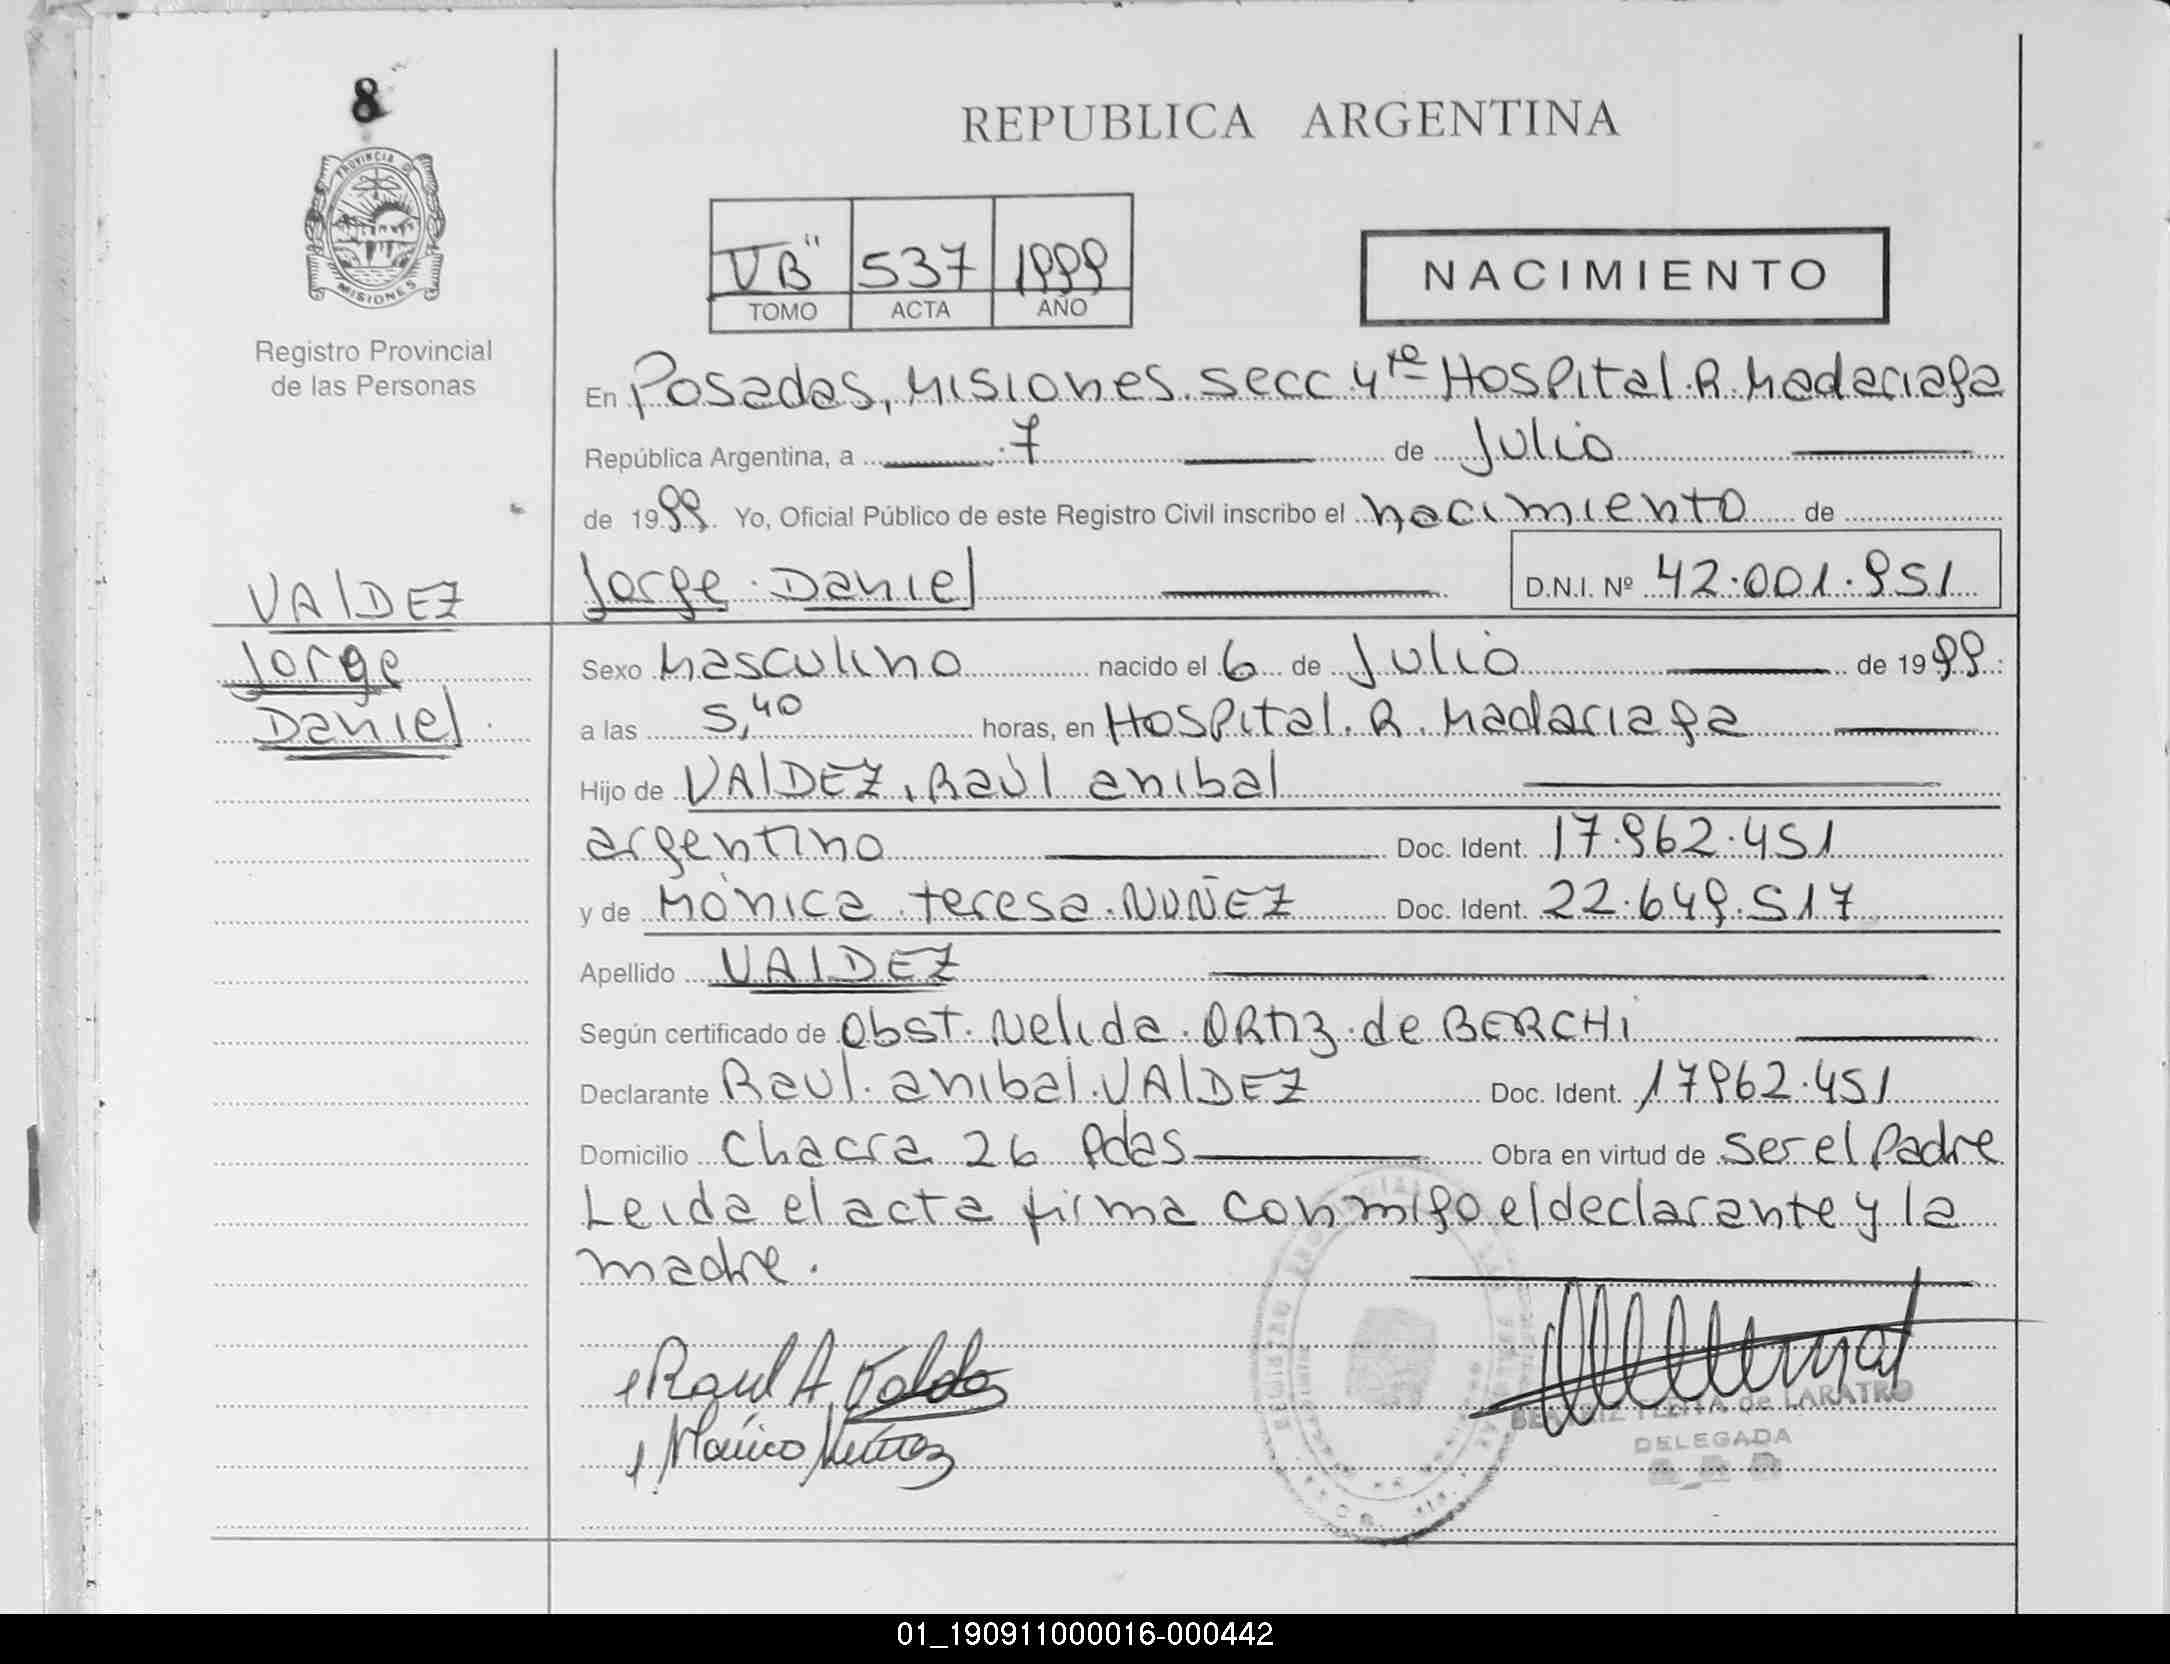 8
PROVINCIA D
MISIONES
Registro Provincial
de las Personas
REPUBLICA ARGENTINA
VB" 537 1999
TOMO ACTA AÑO
NACIMIENTO
En Posadas, Misiones. secc 4ta Hospital. R. Madariaga
República Argentina, a 7 de Julio
de 1999. Yo, Oficial Público de este Registro Civil inscribo el nacimiento de
Jorge Daniel D.N.I. Nº 42.001.951
VAlDEZ
Jorge
Daniel
Sexo Masculino nacido el 6 de Julio de 1999
a las 5,40 horas, en Hospital. R. Madariaga
Hijo de VAlDEZ, Raúl anibal
argentino Doc. Ident. 17.962.451
y de Mónica teresa NUÑEZ Doc. Ident. 22.649.517
Apellido VAlDEZ
Según certificado de Obst. Nelida ORtiz de BERCHi
Declarante Raul anibal VAlDEZ Doc. Ident. 17962.451
Domicilio Chacra 26 Pdas Obra en virtud de ser el Padre
Leida el acta firma conmigo el declarante y la
madre.
Raul A Valdez
Mónica Núñez
BEATRIZ de LARATRO
DELEGADA
01_190911000016-000442